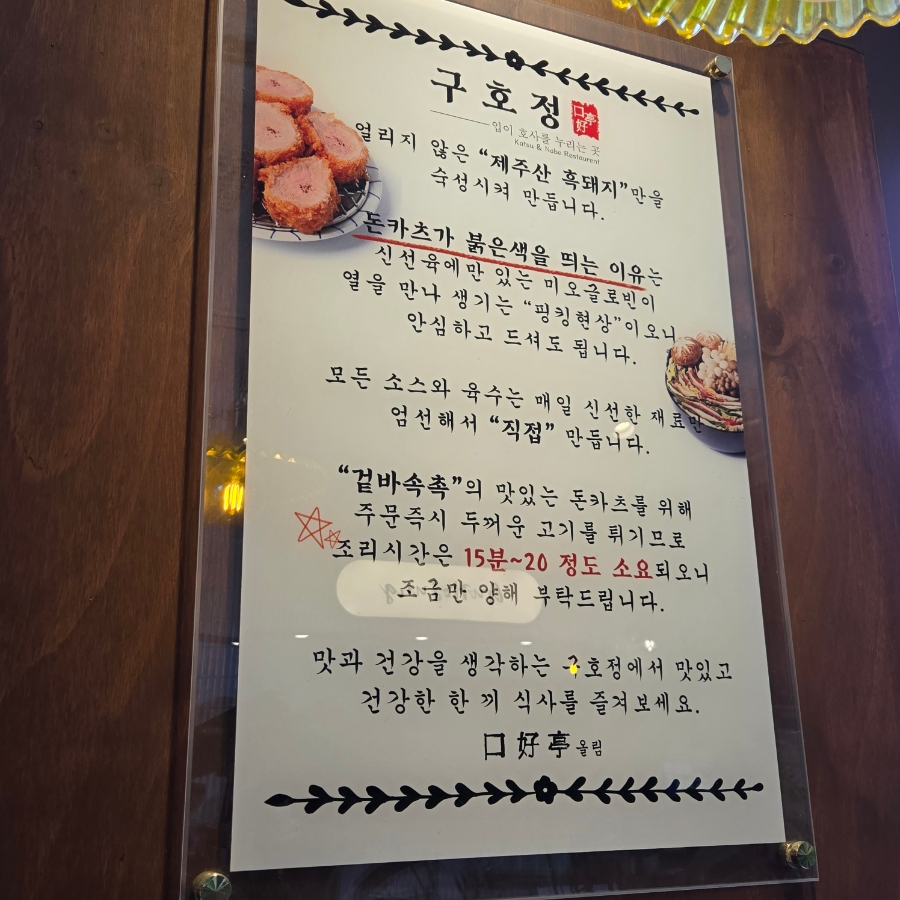 구호정
口好亭
입이 호사를 누리는 곳
Katsu & Nabe Restaurent
얼리지 않은 “제주산 흑돼지”만을
숙성시켜 만듭니다.
돈카츠가 붉은색을 띄는 이유는
신선육에만 있는 미오글로빈이
열을 만나 생기는 “핑킹현상”이오니
안심하고 드셔도 됩니다.
모든 소스와 육수는 매일 신선한 재료만
엄선해서 “직접” 만듭니다.
“겉바속촉”의 맛있는 돈카츠를 위해
주문즉시 두꺼운 고기를 튀기므로
조리시간은 15분~20 정도 소요되오니
조금만 양해 부탁드립니다.
맛과 건강을 생각하는 구호정에서 맛있고
건강한 한 끼 식사를 즐겨보세요.
口好亭 올림